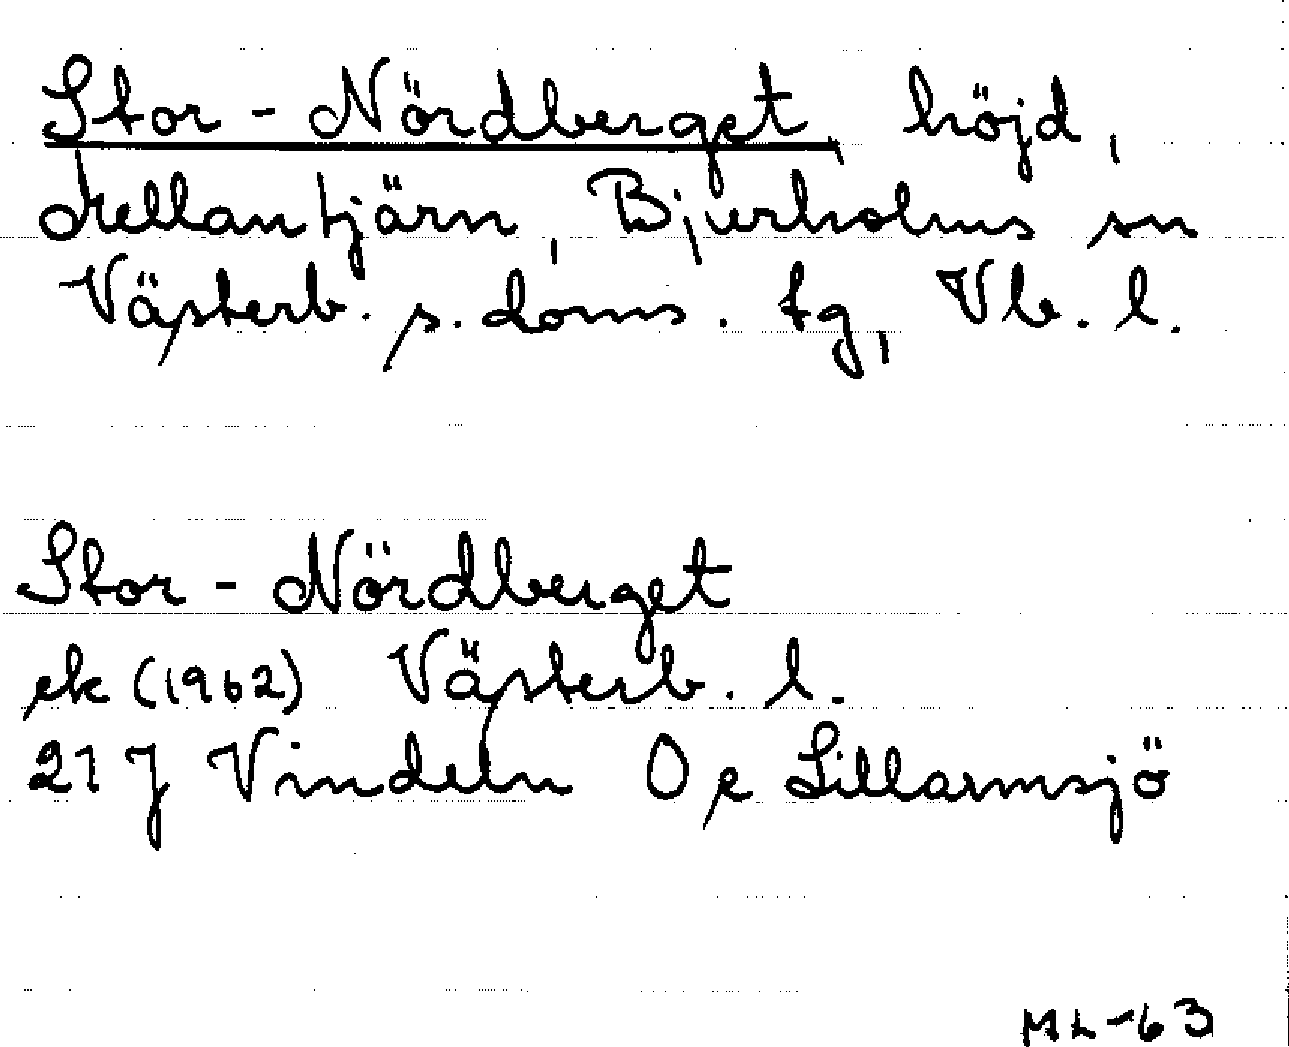 Stor-Nördberget, höjd,
Mellantjärn, Bjurholms sn
Västerb. s. doms. tg, Vb. l.
Stor-Nördberget
ek (1962) Västerb. l.
21 J Vindeln O e Lillarmsjö
ML-63